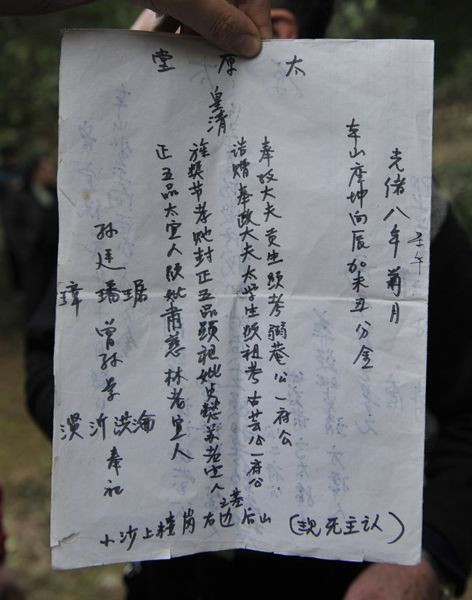 太原堂
光绪八年菊月
壬午
山 坤向 加未丑分金
皇清
奉政大夫 贡生 显考 公一府公
诰赠奉政大夫太学生显祖考 公一府公
旌奖节孝 封正五品显祖妣 老宜人
之墓
正五品太宜人显妣肃慈林老宜人
孙廷 琚 璠 璋
曾孙学 洪沂 奉祀
小沙上楼岗右边后山（现无主认）